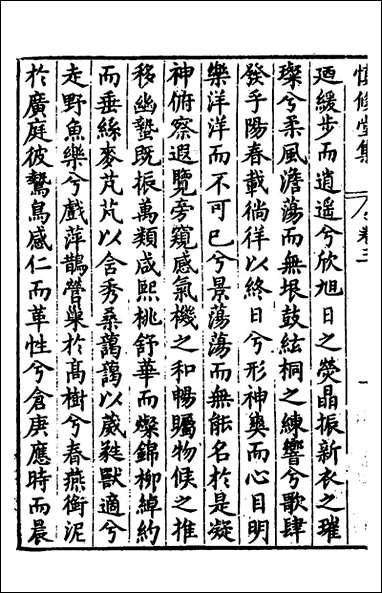 慎修堂集 卷三 一
廼緩步而逍遥兮欣旭日之熒晶振新衣之璀
璨兮柔風澹蕩而無垠鼓絃桐之練響兮歌肆
發乎陽春載徜徉以終日兮形神與而心目明
樂洋洋而不可已兮景蕩蕩而無能名於是凝
神俯察遐覽旁窺感氣機之和暢矚物候之推
移幽蟄既振萬類咸熙桃舒華而燦錦柳綽約
而垂絲麥芃芃以含秀桑藹藹以葳甤獸適兮
走野魚樂兮戲萍鵲營巢於髙樹兮春燕銜泥
於廣庭彼鷙鳥感仁而革性兮倉庚應時而晨